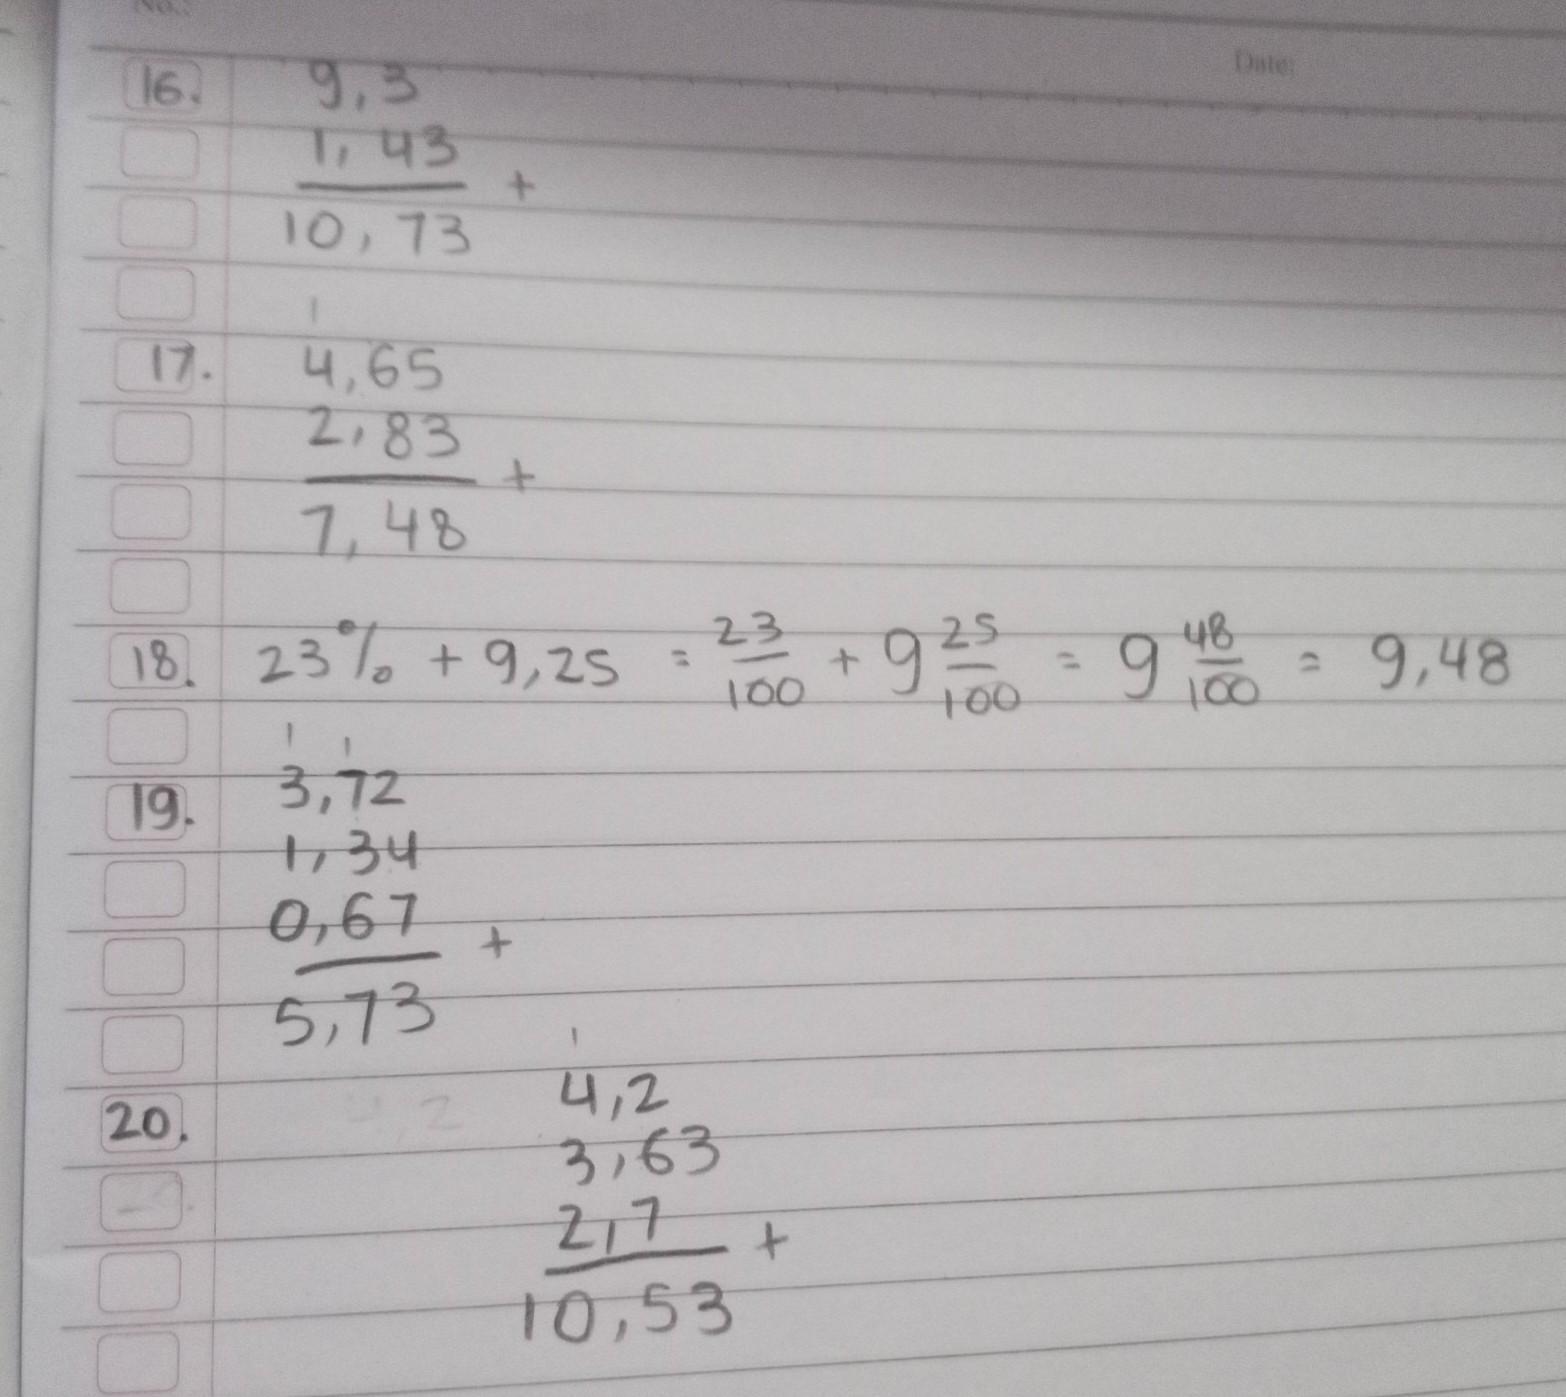 No.:
Date:
16. 9,3
1,43
+
10,73
1
17. 4,65
2,83
+
7,48
18. 23% + 9,25 = 23/100 + 9 25/100 = 9 48/100 = 9,48
1 1
19. 3,72
1,34
0,67
+
5,73
1
20. 4,2 4,2
3,63
2,7
+
10,53